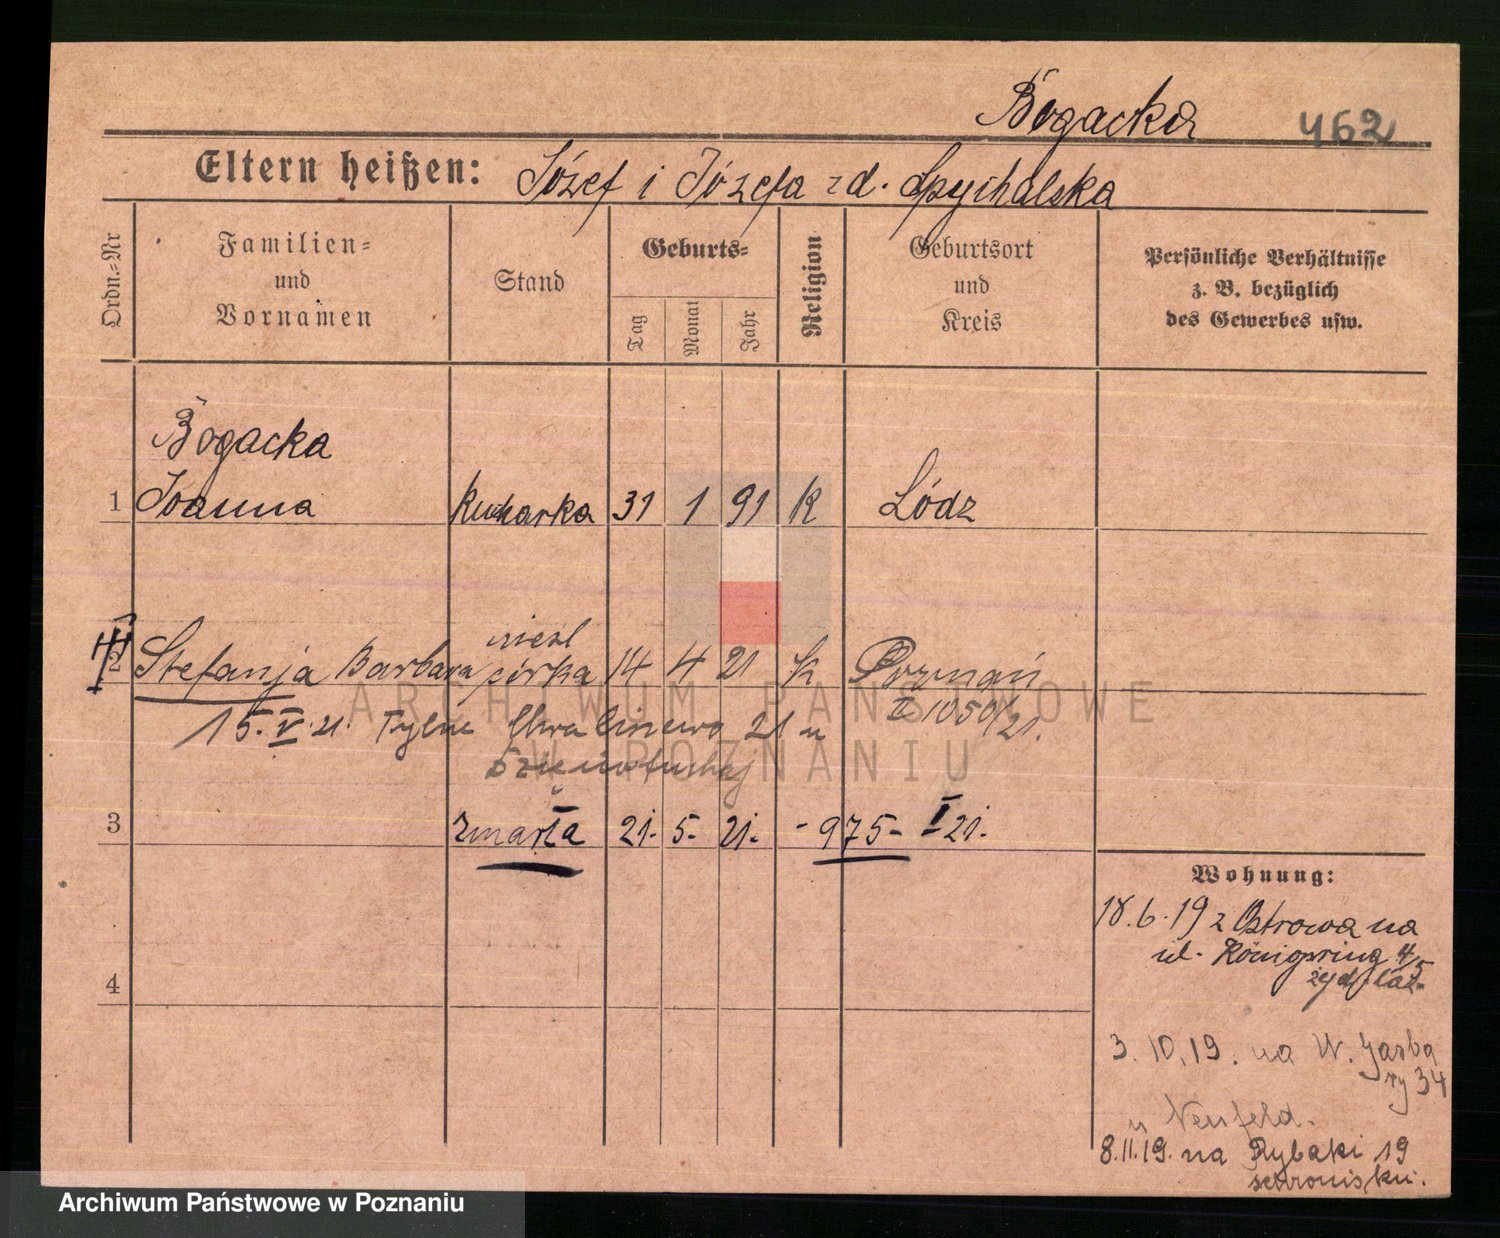 Bogacka 462
Eltern heißen: Józef i Józefa z d. Spychalska
Ordn.=Nr
Familien=
und
Vornamen
Stand
Geburts=
Tag
Monat
Jahr
Religion
Geburtsort
und
Kreis
Persönliche Verhältnisse
z. B. bezüglich
des Gewerbes usw.
Bogacka
1 Joanna kucharka 31 1 91 k Łódz
nieśl
2 Stefanja Barbara córka 14 4 21 k Poznań
15. V. 21. Tylne Chwaliszewo 21 u
II 1050/21.
3 zmarła 21. 5. 21. - 975 - I 21.
Wohnung:
18.6.19 z Ostrowa na
ul. Königsring 4/5
żyd. łaz.
4
3.10.19. na W. Garba
ry 34
u Neufeld.
8.11.19. na Rybaki 19
schronisku.
ARCHIWUM PAŃSTWOWE
W POZNANIU
Archiwum Państwowe w Poznaniu